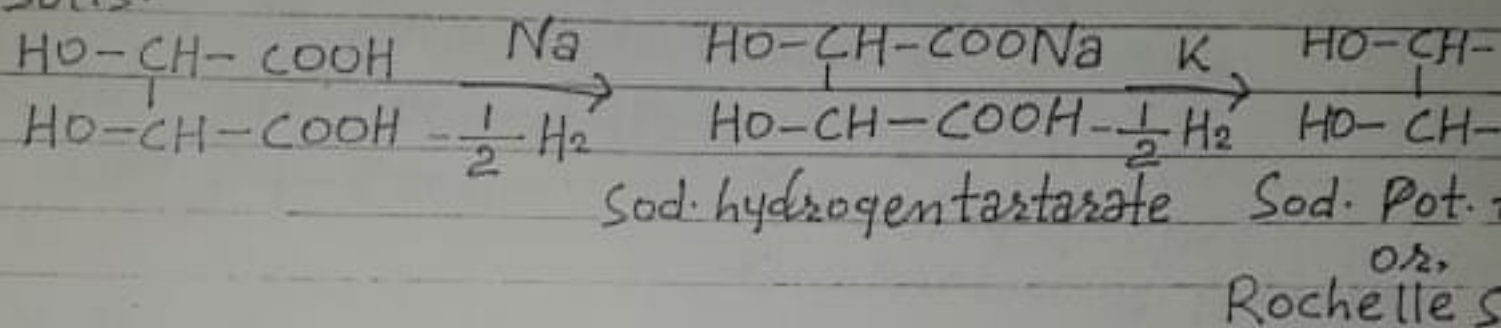 HO-CH-COOH Na HO-CH-COONa K HO-CH-
HO-CH-COOH -1/2 H2 HO-CH-COOH -1/2 H2 HO-CH-
Sod. hydrogentartarate Sod. Pot.
or,
Rochelle S